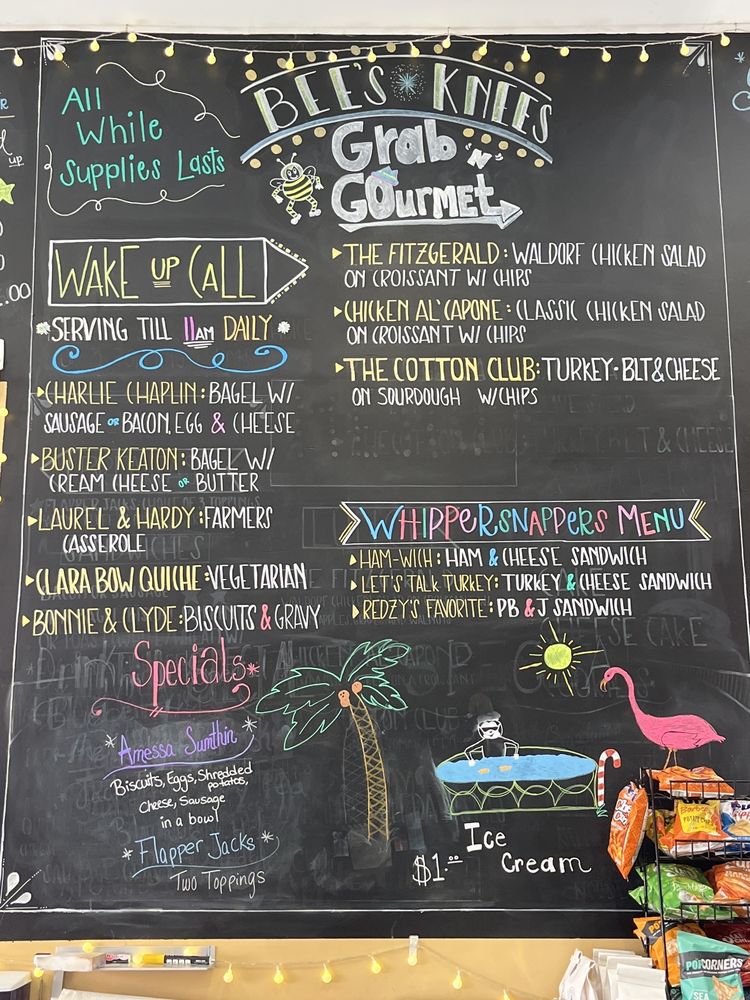 All
While
Supplies Lasts
BEE'S KNEES
Grab 'N'
GOurmet
WAKE UP CALL
SERVING TILL 11AM DAILY
CHARLIE CHAPLIN: BAGEL W/
SAUSAGE OR BACON, EGG & CHEESE
BUSTER KEATON: BAGEL W/
CREAM CHEESE OR BUTTER
LAUREL & HARDY: FARMERS
CASSEROLE
CLARA BOW QUICHE: VEGETARIAN
BONNIE & CLYDE: BISCUITS & GRAVY
THE FITZGERALD: WALDORF CHICKEN SALAD
ON CROISSANT W/ CHIPS
CHICKEN AL'CAPONE: CLASSIC CHICKEN SALAD
ON CROISSANT W/ CHIPS
THE COTTON CLUB: TURKEY-BLT & CHEESE
ON SOURDOUGH W/CHIPS
WHIPPERSNAPPERS MENU
HAM-WICH: HAM & CHEESE SANDWICH
LET'S TALK TURKEY: TURKEY & CHEESE SANDWICH
REDZY'S FAVORITE: PB & J SANDWICH
Specials
Amessa Sumthin
Biscuits, Eggs, Shredded
potatoes,
Cheese, Sausage
in a bowl
Flapper Jacks
Two Toppings
Ice
Cream
$1.00
up
.00
POPCORNERS
SEA